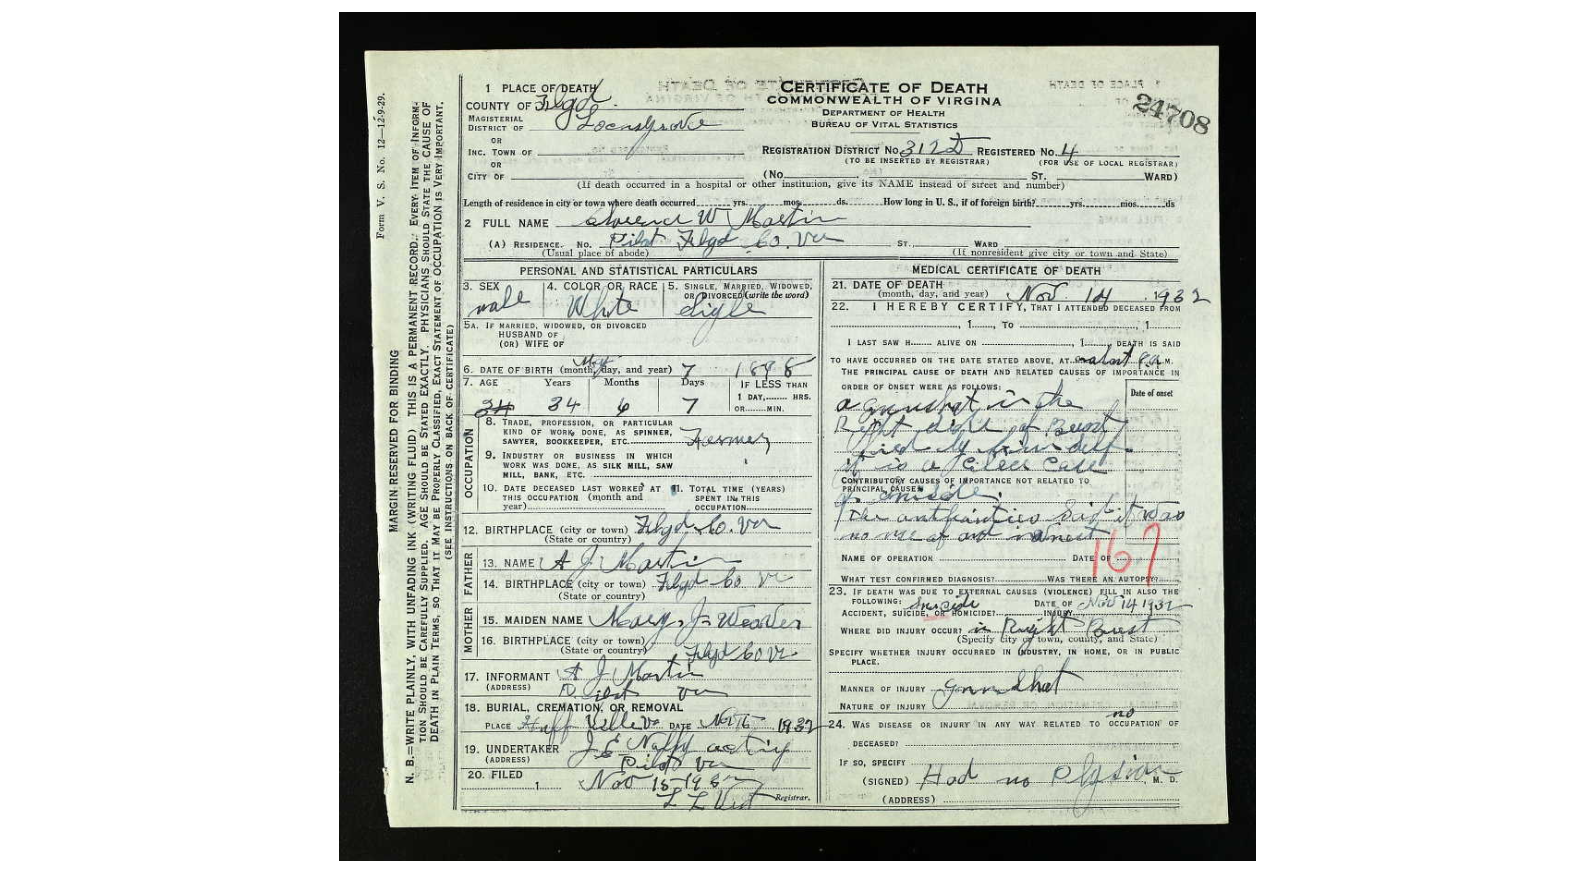 Form V. S. No. 12—12-9-29.
MARGIN RESERVED FOR BINDING
N. B.—WRITE PLAINLY, WITH UNFADING INK (WRITING FLUID) THIS IS A PERMANENT RECORD. EVERY ITEM OF INFORM-
TION SHOULD BE CAREFULLY SUPPLIED. AGE SHOULD BE STATED EXACTLY. PHYSICIANS SHOULD STATE THE CAUSE OF
DEATH IN PLAIN TERMS, SO THAT IT MAY BE PROPERLY CLASSIFIED. EXACT STATEMENT OF OCCUPATION IS VERY IMPORTANT.
(SEE INSTRUCTIONS ON BACK OF CERTIFICATE)
1 PLACE OF DEATH
COUNTY OF Floyd
MAGISTERIAL
DISTRICT OF Locustgrove
OR
INC. TOWN OF
OR
CITY OF
CERTIFICATE OF DEATH
COMMONWEALTH OF VIRGINIA
DEPARTMENT OF HEALTH
BUREAU OF VITAL STATISTICS
24708
REGISTRATION DISTRICT NO. 312D REGISTERED NO. 4
(TO BE INSERTED BY REGISTRAR) (FOR USE OF LOCAL REGISTRAR)
(No. ST. WARD)
(If death occurred in a hospital or other institution, give its NAME instead of street and number)
Length of residence in city or town where death occurred yrs. mos. ds. How long in U. S., if of foreign birth? yrs. mos. ds
2 FULL NAME Clarence W Martin
(A) RESIDENCE. No. Pilot Floyd Co. Va ST., WARD
(Usual place of abode) (If nonresident give city or town and State)
PERSONAL AND STATISTICAL PARTICULARS
3. SEX male
4. COLOR OR RACE White
5. SINGLE, MARRIED, WIDOWED,
OR DIVORCED (write the word)
sigle
5A. IF MARRIED, WIDOWED, OR DIVORCED
HUSBAND OF
(OR) WIFE OF
6. DATE OF BIRTH (month, day, and year) May 7 1898
7. AGE Years Months Days IF LESS THAN
34 34 6 7 1 DAY, HRS.
OR MIN.
OCCUPATION
8. TRADE, PROFESSION, OR PARTICULAR
KIND OF WORK DONE, AS SPINNER,
SAWYER, BOOKKEEPER, ETC. Farmer
9. INDUSTRY OR BUSINESS IN WHICH
WORK WAS DONE, AS SILK MILL, SAW
MILL, BANK, ETC.
10. DATE DECEASED LAST WORKED AT
THIS OCCUPATION (month and
year)
11. TOTAL TIME (YEARS)
SPENT IN THIS
OCCUPATION
12. BIRTHPLACE (city or town) Floyd Co. Va
(State or country)
FATHER
13. NAME A J Martin
14. BIRTHPLACE (city or town) Floyd Co Va
(State or country)
MOTHER
15. MAIDEN NAME Mary J Weaver
16. BIRTHPLACE (city or town)
(State or country) Floyd Co Va
17. INFORMANT A J Martin
(ADDRESS) Pilot Va
18. BURIAL, CREMATION, OR REMOVAL
PLACE Huffville Va DATE Nov 16 1932
19. UNDERTAKER J E acting
(ADDRESS) Pilot Va
20. FILED Nov 15 1932
L L West Registrar.
MEDICAL CERTIFICATE OF DEATH
21. DATE OF DEATH
(month, day, and year) Nov. 14, 1932
22. I HEREBY CERTIFY, THAT I ATTENDED DECEASED FROM
, 1 , TO , 1
I LAST SAW H ALIVE ON , 1 , DEATH IS SAID
TO HAVE OCCURRED ON THE DATE STATED ABOVE, AT about 9 a M.
THE PRINCIPAL CAUSE OF DEATH AND RELATED CAUSES OF IMPORTANCE IN
ORDER OF ONSET WERE AS FOLLOWS:
Date of onset
a gunshot in the
Right side of Brest
fired by him self
it is a Clear Case
CONTRIBUTORY CAUSES OF IMPORTANCE NOT RELATED TO
PRINCIPAL CAUSE:
of suicide.
The authorities said it was
no use of an inquest
167
NAME OF OPERATION DATE OF
WHAT TEST CONFIRMED DIAGNOSIS? WAS THERE AN AUTOPSY?
23. IF DEATH WAS DUE TO EXTERNAL CAUSES (VIOLENCE) FILL IN ALSO THE
FOLLOWING:
ACCIDENT, SUICIDE, OR HOMICIDE? Suicide DATE OF INJURY Nov 14 1932
WHERE DID INJURY OCCUR? in Right Brest
(Specify city or town, county, and State)
SPECIFY WHETHER INJURY OCCURRED IN INDUSTRY, IN HOME, OR IN PUBLIC
PLACE.
MANNER OF INJURY Gunshot
NATURE OF INJURY
24. WAS DISEASE OR INJURY IN ANY WAY RELATED TO OCCUPATION OF
DECEASED? no
IF SO, SPECIFY
(SIGNED) Had no Physian M. D.
(ADDRESS)